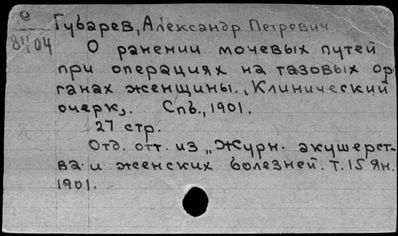 е
8404
Губарев, Александр Петрович
О ранении мочевых путей
при операциях на тазовых ор-
ганах женщины. „Клинический
очерк„. Спб., 1901.
27 стр.
Отд. отт. из „Журн. акушерст-
ва и женских болезней. Т. 15 Ян.
1901.